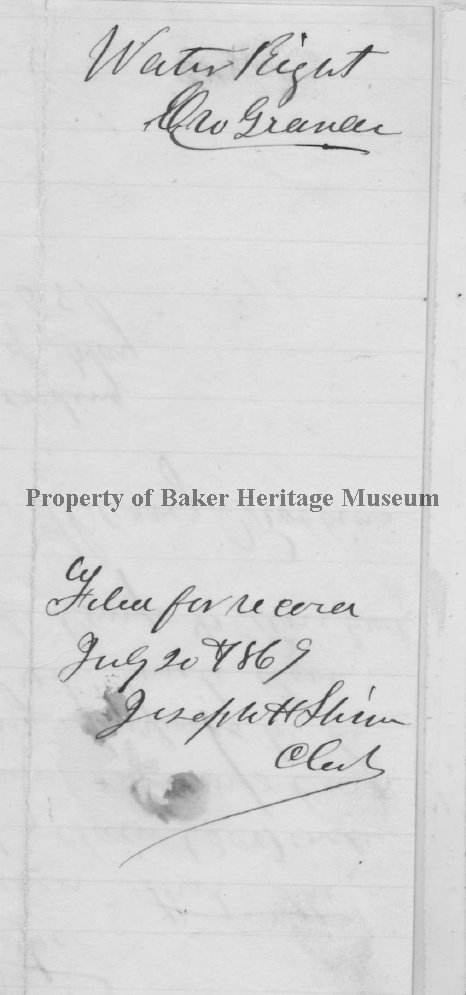 Water Right
Oro Grande
Property of Baker Heritage Museum
Filed for record
July 20th 1869
Joseph H Shinn
Clerk